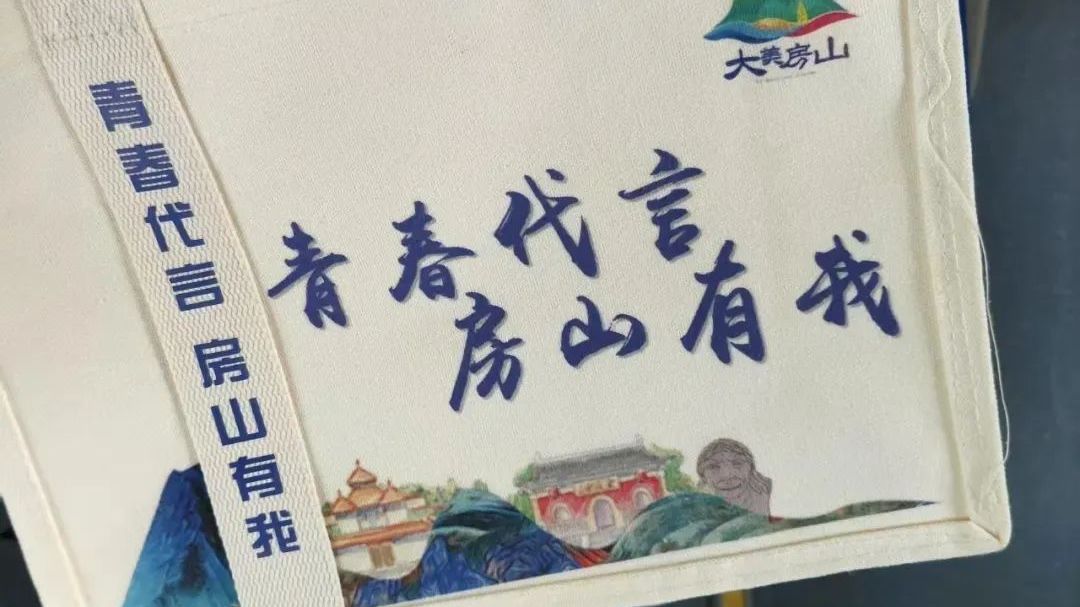 大美房山
青春代言
房山有我
青春代言 房山有我